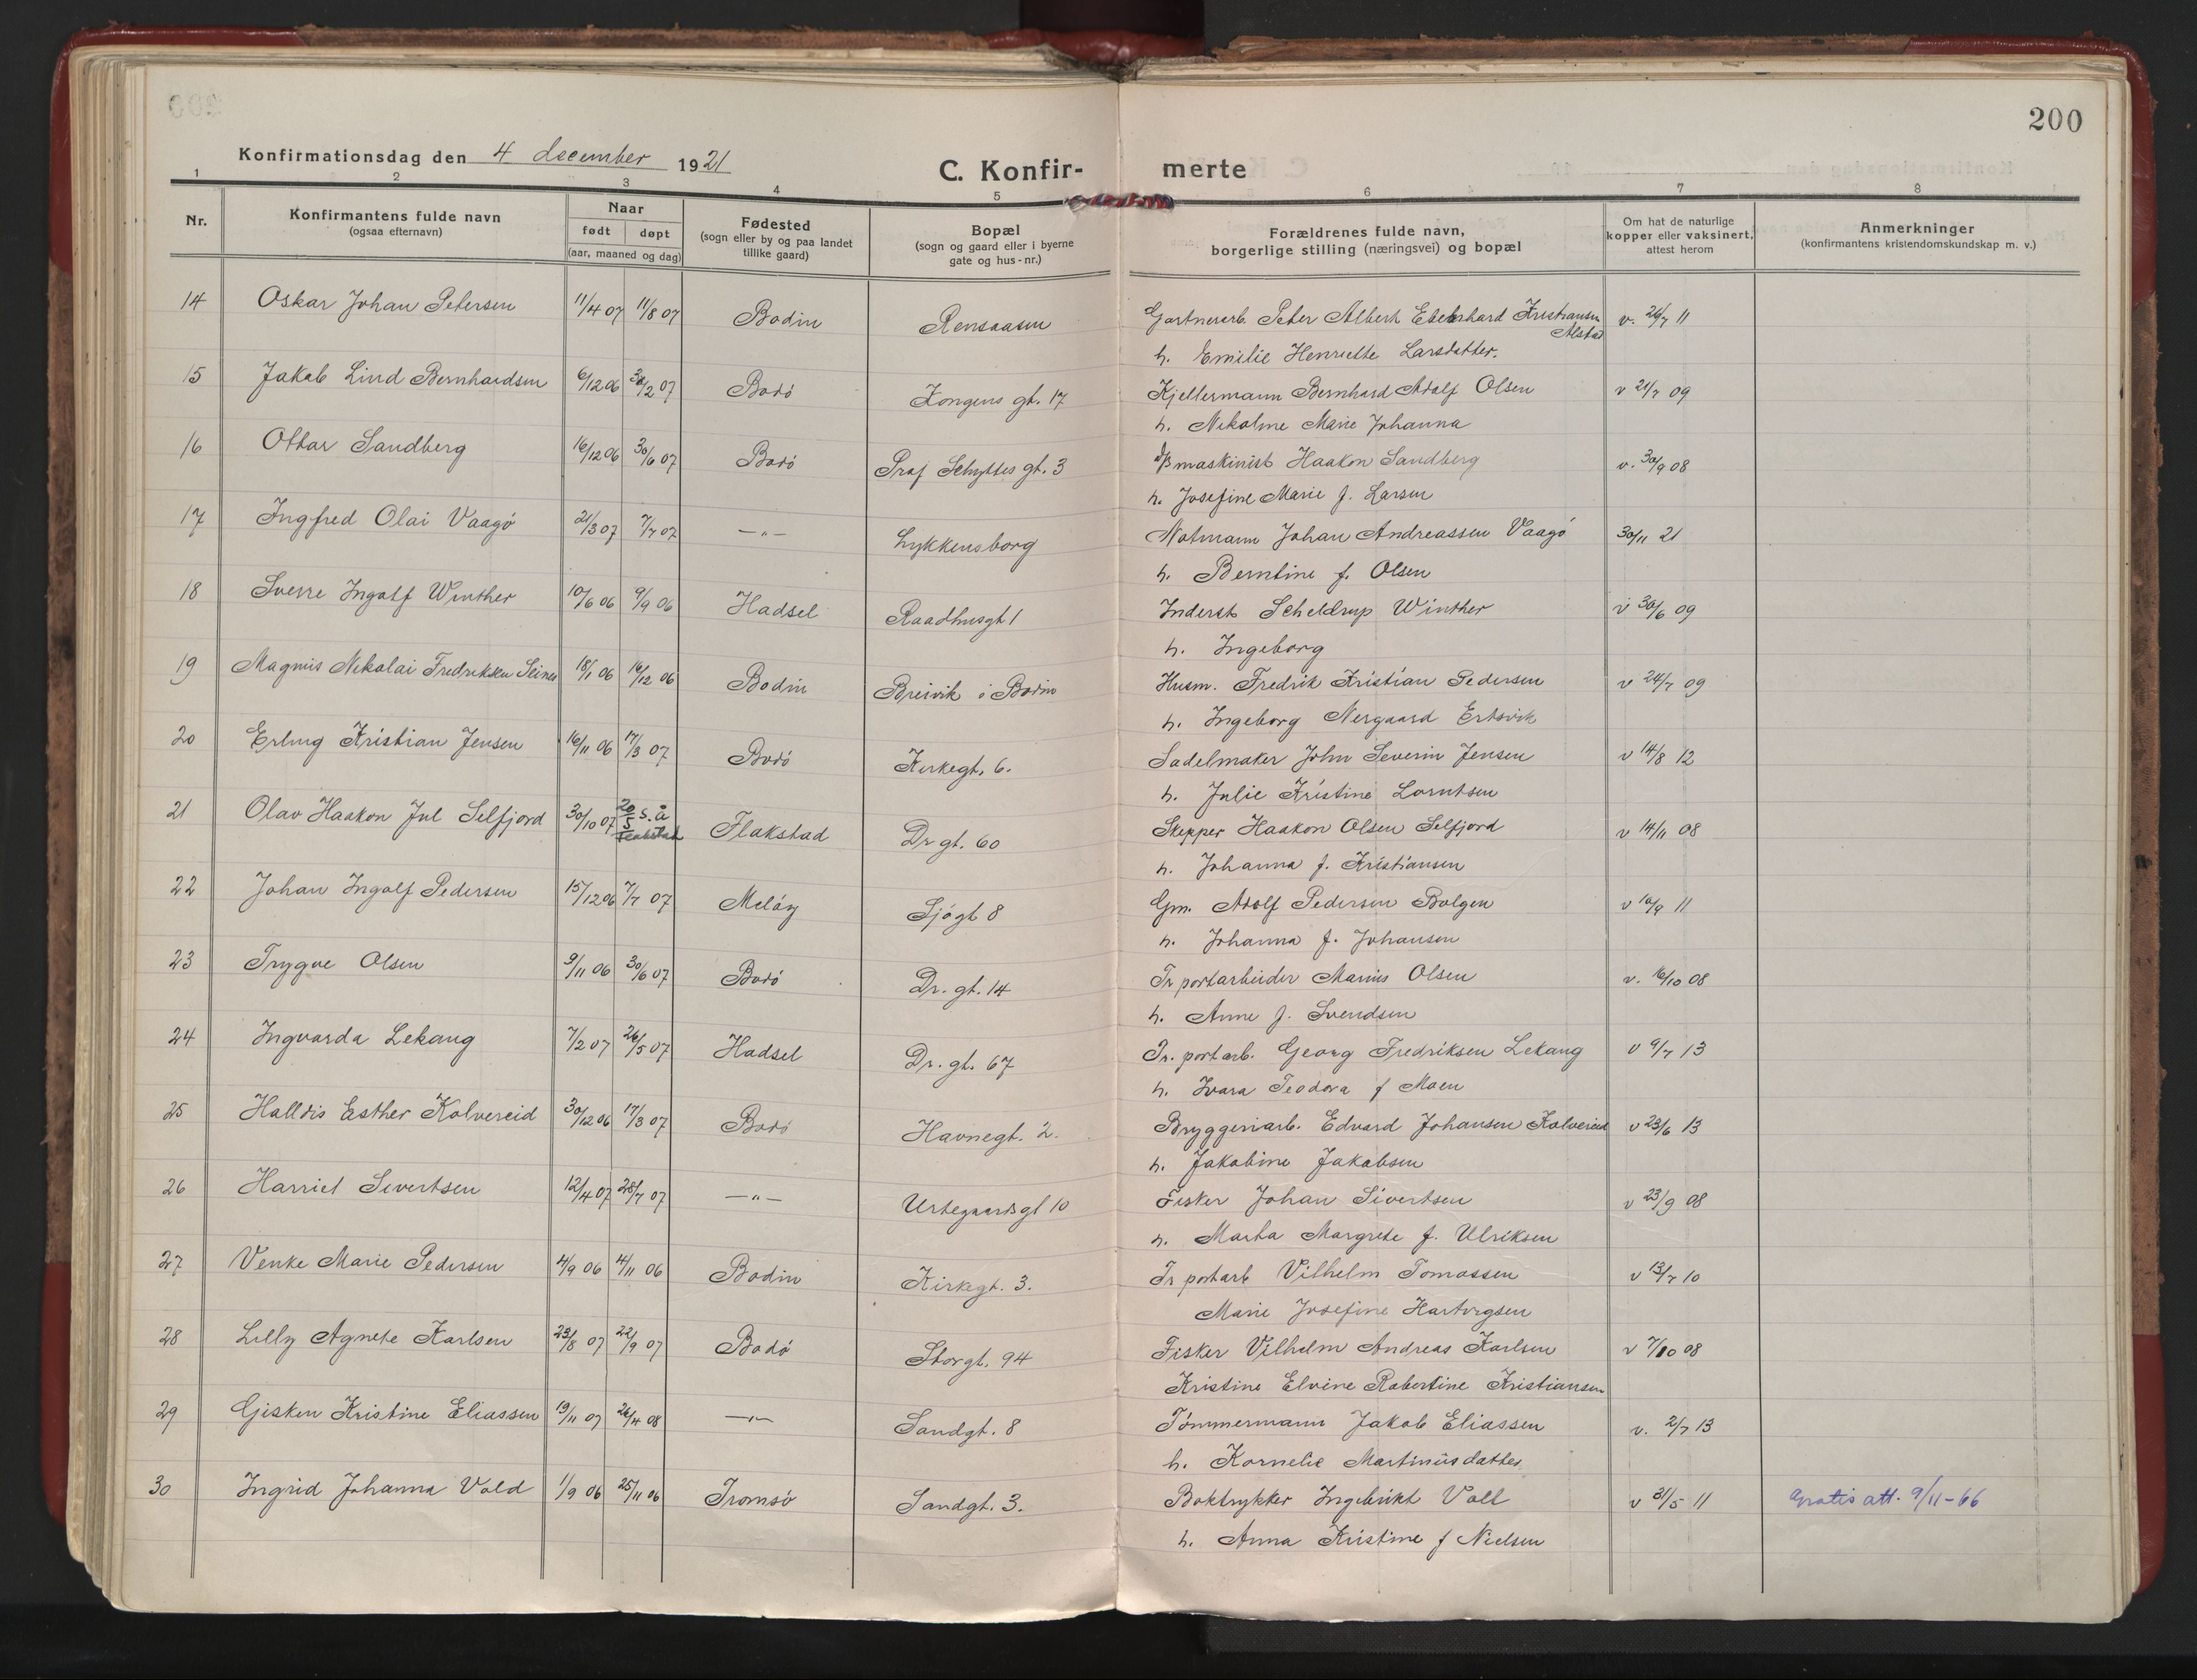 200
Konfirmationsdag den 4 december 1921
C. Konfir- merte
1 2 3 4 5 6 7 8
Nr.
Konfirmantens fulde navn
(ogsaa efternavn)
Naar
født døpt
(aar, maaned og dag)
Fødested
(sogn eller by og paa landet
tillike gaard)
Bopæl
(sogn og gaard eller i byerne
gate og hus-nr.)
Forældrenes fulde navn,
borgerlige stilling (næringsvei) og bopæl
Om hat de naturlige
kopper eller vaksinert,
attest herom
Anmerkninger
(konfirmantens kristendomskundskap m. v.)
14 Oskar Johan Petersen 11/4 07 11/8 07 Bodin Rensaasen Gartnerarb. Peter Albert Eberhard Kristiansen v. 26/7 11
Alstad
h. Emilie Henriette Larsdatter.
15 Jakob Lind Bernhardsen 6/12 06 30/2 07 Bodø Kongens gt. 17 Kjellermann Bernhard Adolf Olsen v 21/7 09
h. Nikoline Marie Johanna
16 Ottar Sandberg 16/12 06 30/6 07 Bodø Prof Schyttes gt. 3 D/B maskinist Haakon Sandberg v. 30/9 08
h. Josefine Marie f. Larsen
17 Ingfred Olai Vaagø 21/3 07 7/7 07 —"— Lykkensborg Notmann Johan Andreassen Vaagø 30/11 21
h. Berntine f. Olsen
18 Sverre Ingolf Winther 10/6 06 9/9 06 Hadsel Raadhusgt 1 Inderst Scheldrup Winther v 30/6 09
h. Ingeborg
19 Magnus Nikolai Fredriksen Seines 18/1 06 16/12 06 Bodin Breivik i Bodin Husm. Fredrik Kristian Pedersen v 24/7 09
h. Ingeborg Nergaard Ertsvik
20 Erling Kristian Jensen 16/11 06 17/3 07 Bodø Kirkegt. 6. Sadelmaker John Severin Jensen v 14/8 12
h. Julie Kristine Lorntsen
21 Olav Haakon Jul Selfjord 30/10 07 20/5 s.å Flakstad Dr gt. 60 Skipper Haakon Olsen Selfjord v 14/11 08
Flakstad
h. Johanna f. Kristiansen
22 Johan Ingolf Pedersen 15/12 06 7/7 07 Meløy Sjøgt 8 Gm. Adolf Pedersen Bolgen v 10/9 11
h. Johanna f. Johansen
23 Trygve Olsen 9/11 06 30/6 07 Bodø Dr. gt. 14 Tr portarbeider Marius Olsen v. 16/10 08
h. Anne f. Svendsen
24 Ingvarda Lekang 7/2 07 26/5 07 Hadsel Dr. gt. 67 Tr. portarb. Georg Fredriksen Lekang v 9/7 13
h. Ivara Teodora f Moen
25 Halldis Esther Kolvereid 30/12 06 17/3 07 Bodø Havnegt. 2. Bryggeriarb. Edvard Johansen Kolvereid v 23/6 13
h. Jakobine Jakobsen
26 Harriet Sivertsen 12/4 07 28/7 07 —"— Urtegaardsgt 10 Fisker Johan Sivertsen v 23/9 08
h. Marta Margrete f. Ulriksen
27 Venke Marie Pedersen 4/9 06 4/11 06 Bodin Kirkegt. 3. Tr portarb Vilhelm Tomassen v 13/7 10
Marie Josefine Hartvigsen
28 Lilly Agnete Karlsen 23/8 07 22/9 07 Bodø Storgt. 94 Fisker Vilhelm Andreas Karlsen v 7/10 08
Kristine Elvine Robertine Kristiansen
29 Gisken Kristine Eliassen 19/11 07 26/4 08 —"— Sandgt. 8 Tømmermann Jakob Eliassen v. 2/7 13
h. Kornelie Martinusdatter
30 Ingrid Johanna Vold 1/9 06 25/11 06 Tromsø Sandgt. 3. Boktrykker Ingebrikt Voll v 31/5 11 Gratis att. 9/11-66
h. Anna Kristine f Nielsen